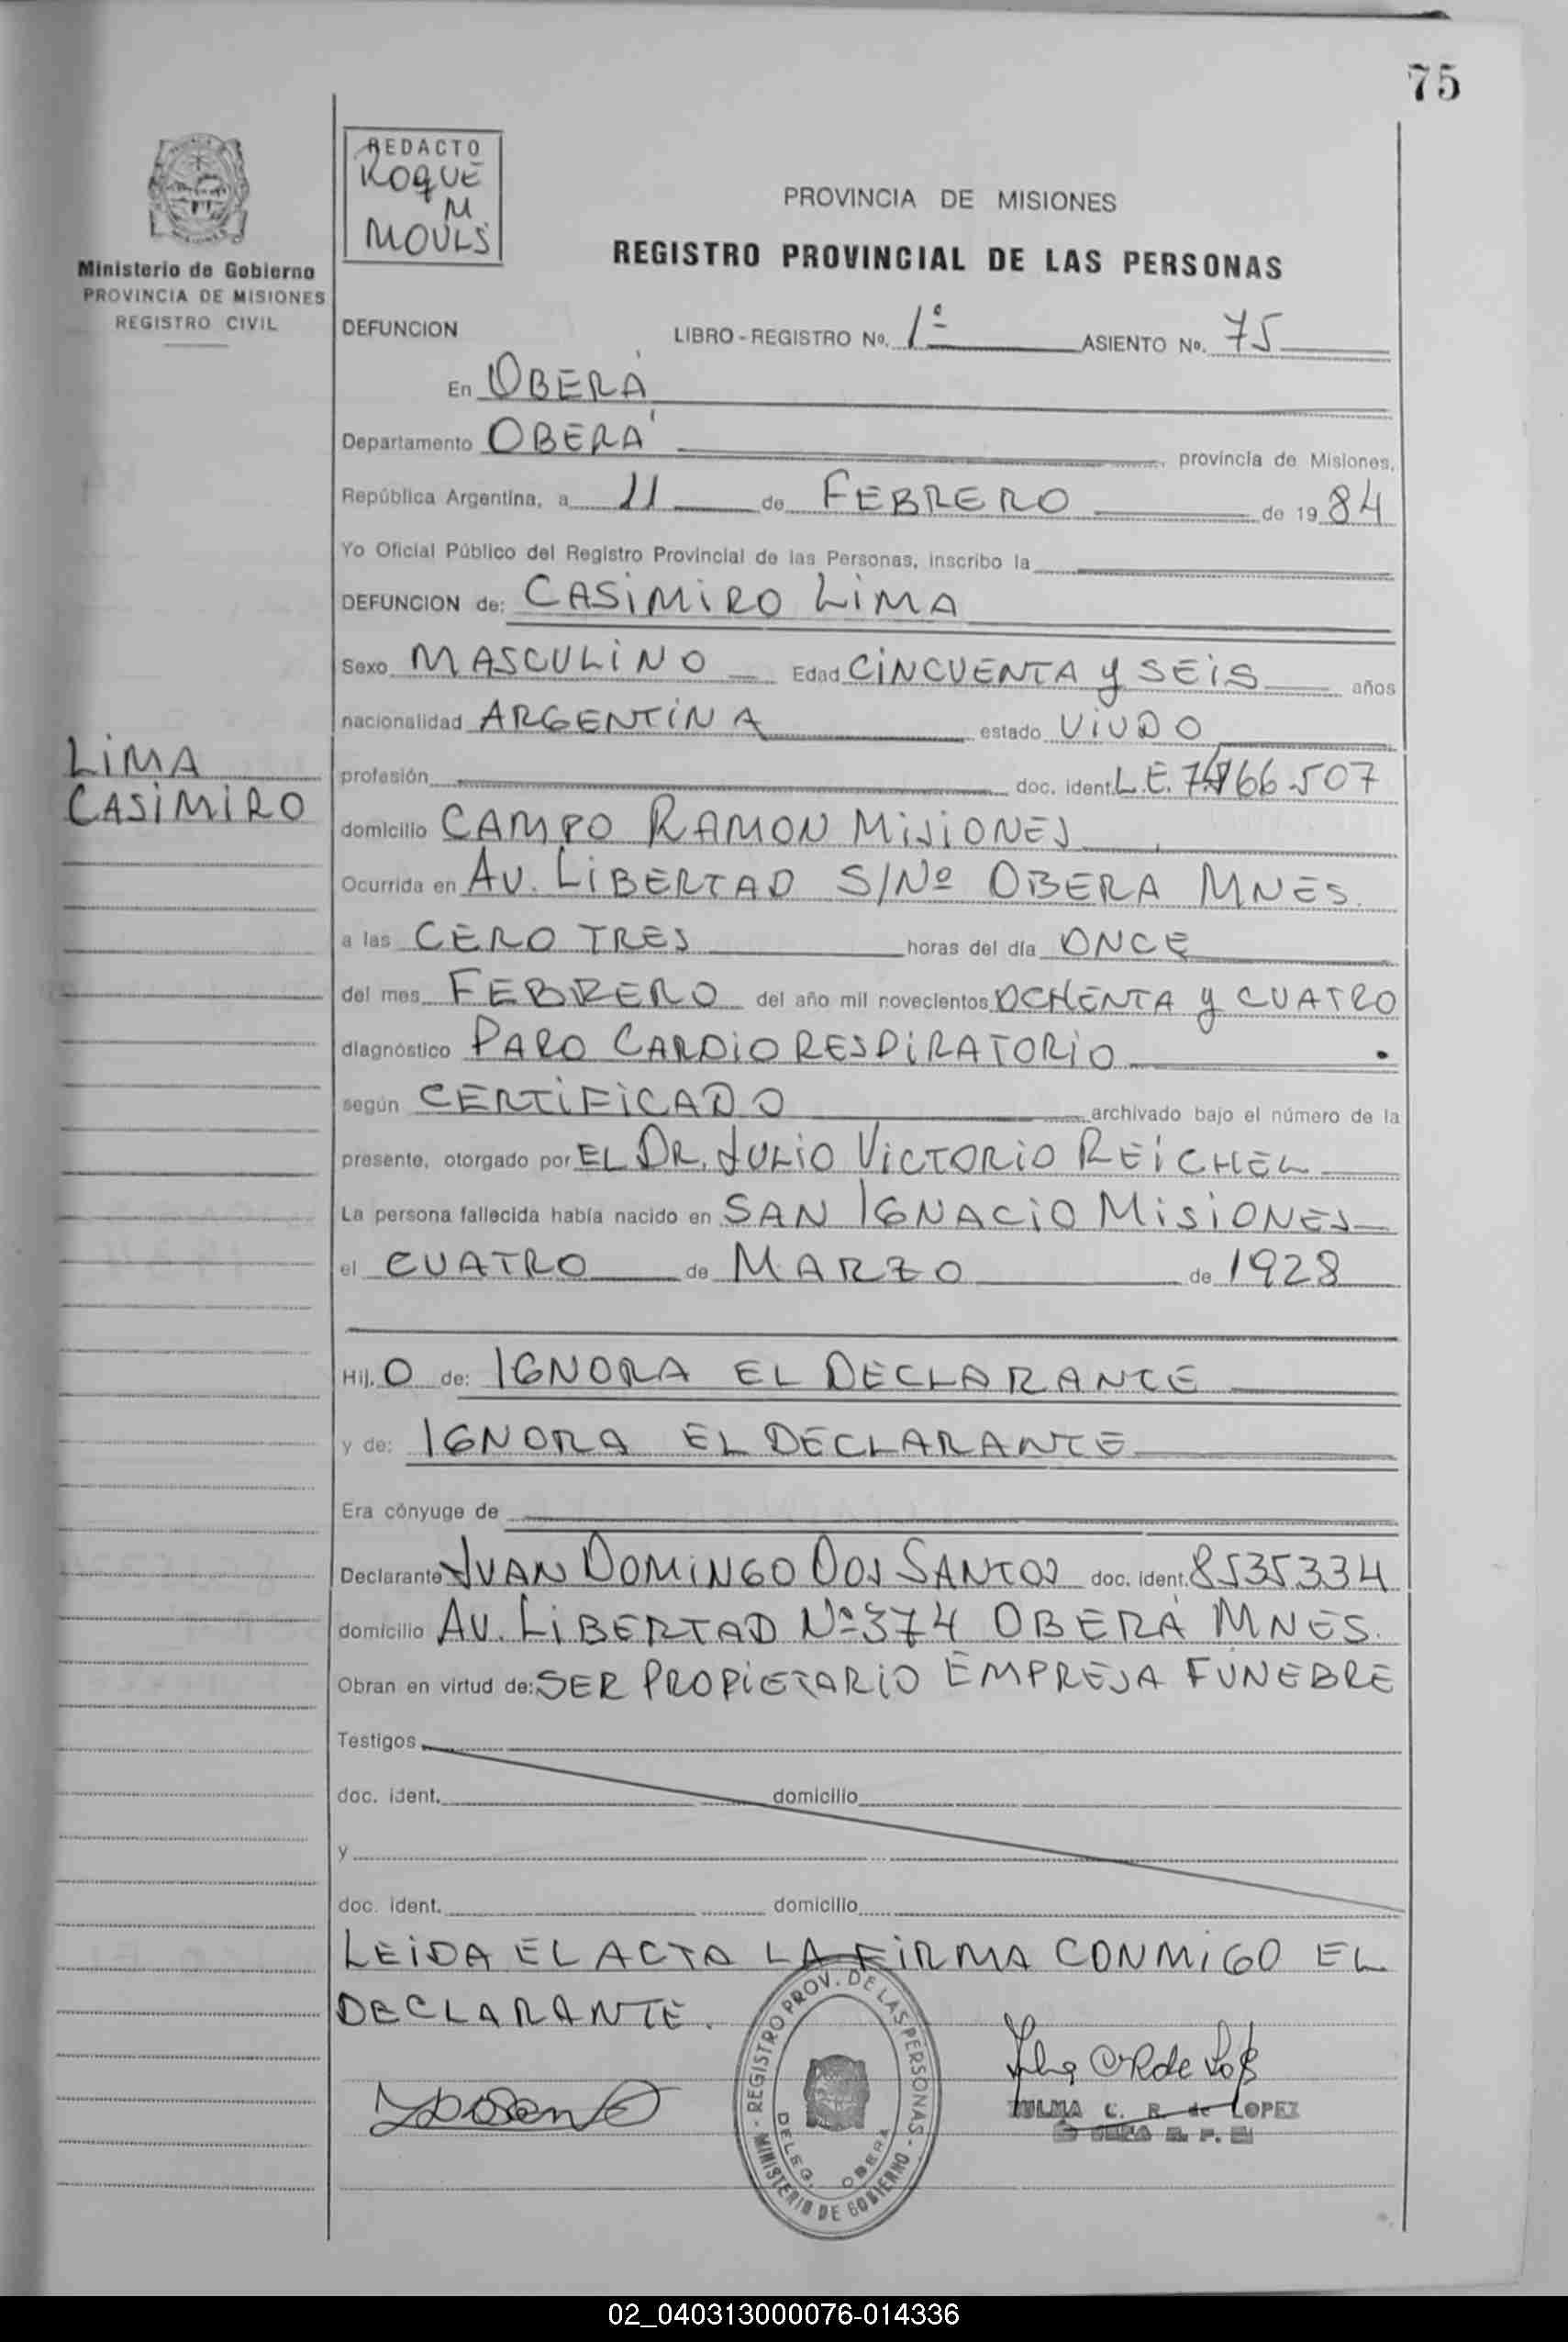 75
REDACTO
ROQUE
M
MOULS
Ministerio de Gobierno
PROVINCIA DE MISIONES
REGISTRO CIVIL
PROVINCIA DE MISIONES
REGISTRO PROVINCIAL DE LAS PERSONAS
DEFUNCION LIBRO - REGISTRO No. 1º ASIENTO No. 75
En OBERÁ
Departamento OBERÁ provincia de Misiones,
República Argentina, a 11 de FEBRERO de 1984
Yo Oficial Público del Registro Provincial de las Personas, inscribo la
DEFUNCION de: CASIMIRO LIMA
Sexo MASCULINO Edad CINCUENTA Y SEIS años
nacionalidad ARGENTINA estado VIUDO
LIMA
CASIMIRO
profesión doc. ident. L.E. 507
domicilio CAMPO RAMON MISIONES
Ocurrida en AV. LIBERTAD S/Nº OBERA MNES.
a las CERO TRES horas del día ONCE
del mes FEBRERO del año mil novecientos OCHENTA Y CUATRO
diagnóstico PARO CARDIORESPIRATORIO
según CERTIFICADO archivado bajo el número de la
presente, otorgado por EL DR. JULIO VICTORIO REICHEL
La persona fallecida había nacido en SAN IGNACIO MISIONES
el CUATRO de MARZO de 1928
Hij. O de: IGNORA EL DECLARANTE
y de: IGNORA EL DECLARANTE
Era cónyuge de
Declarante JUAN DOMINGO DOS SANTOS doc. ident. 8535334
domicilio AV. LIBERTAD Nº 374 OBERÁ MNES.
Obran en virtud de: SER PROPIETARIO EMPRESA FUNEBRE
Testigos
doc. ident. domicilio
y
doc. ident. domicilio
LEIDA EL ACTA LA FIRMA CONMIGO EL
DECLARANTE.
REGISTRO PROV. DE LAS PERSONAS - MINISTERIO DE GOBIERNO -
DELEG. OBERA
ZULMA C. R. de LOPEZ
02_040313000076-014336